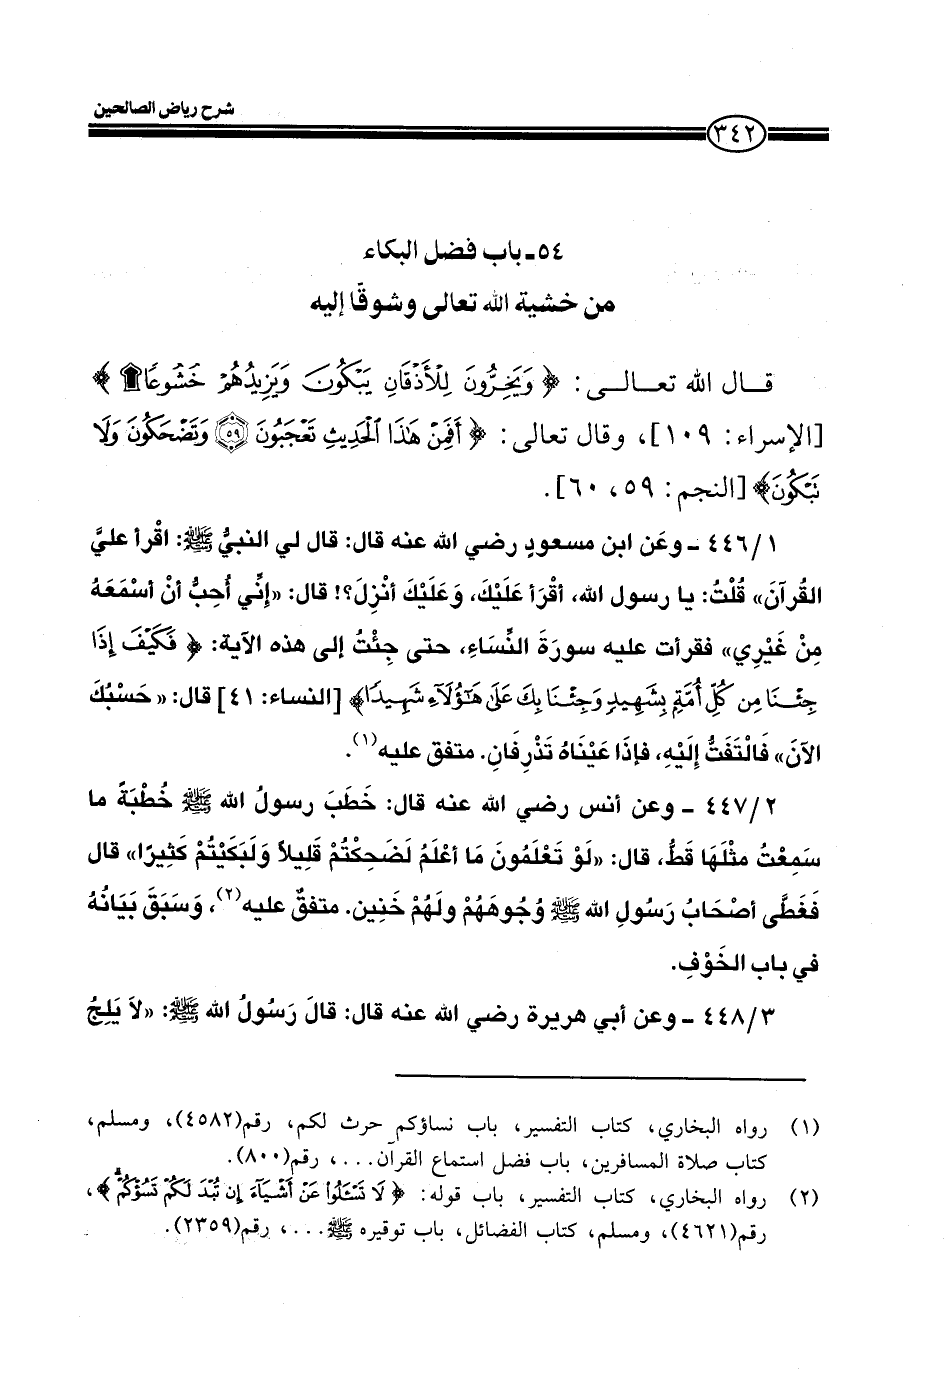 شرح رياض الصالحين
٣٤٢
٥٤ـ باب فضل البكاء
من خشية الله تعالى وشوقًا إليه
قــال الله تعــالــى: ﴿ وَيَخِرُّونَ لِلْأَذْقَانِ يَبْكُونَ وَيَزِيدُهُمْ خُشُوعًا۩ ﴾
[الإسراء: ١٠٩]، وقال تعالى: ﴿ أَفَمِنْ هَٰذَا الْحَدِيثِ تَعْجَبُونَ ٥٩ وَتَضْحَكُونَ وَلَا
تَبْكُونَ﴾ [النجم: ٥٩، ٦٠].
٤٤٦/١ ـ وعَن ابن مسعودٍ رضي الله عنه قال: قال لي النبيُّ ﷺ: اقْرأ عليَّ
القُرآنَ» قُلْتُ: يا رسول الله، أقْرَأ عَلَيْكَ، وَعَلَيْكَ أنْزِلَ؟! قال: «إنِّي أُحِبُّ أنْ أسْمَعَهُ
مِنْ غَيْرِي» فقرأت عليه سورَةَ النِّسَاءِ، حتى جِئْتُ إلى هذه الآية: ﴿ فَكَيْفَ إِذَا
جِئْنَا مِن كُلِّ أُمَّةٍ بِشَهِيدٍ وَجِئْنَا بِكَ عَلَىٰ هَٰٓؤُلَآءِ شَهِيدًا﴾ [النساء: ٤١] قال: «حَسْبُكَ
الآنَ» فَالْتَفَتُّ إلَيْهِ، فإذَا عَيْنَاهُ تَذْرِفَانِ. متفق عليه(١).
٤٤٧/٢ ـ وعن أنس رضي الله عنه قال: خَطَبَ رسولُ الله ﷺ خُطْبَةً ما
سَمِعْتُ مثْلَهَا قَطُّ، قال: «لَوْ تَعْلَمُونَ مَا أعْلَمُ لَضَحِكْتُمْ قَلِيلاً وَلَبَكَيْتُمْ كَثِيرًا» قال
فَغَطَّى أصْحَابُ رَسُولِ الله ﷺ وُجُوهَهُمْ ولَهُمْ خَنِين. متفقٌ عليه(٢)، وَسَبَقَ بَيَانُهُ
في باب الخَوْفِ.
٤٤٨/٣ ـ وعن أبي هريرة رضي الله عنه قال: قالَ رَسُولُ الله ﷺ: «لاَ يَلِجُ
(١) رواه البخاري، كتاب التفسير، باب نساؤكم حرث لكم، رقم(٤٥٨٢)، ومسلم،
كتاب صلاة المسافرين، باب فضل استماع القرآن...، رقم(٨٠٠).
(٢) رواه البخاري، كتاب التفسير، باب قوله: ﴿ لَا تَسْـَٔلُوا۟ عَنْ أَشْيَآءَ إِن تُبْدَ لَكُمْ تَسُؤْكُمْ ﴾،
رقم(٤٦٢١)، ومسلم، كتاب الفضائل، باب توقيره ﷺ...، رقم(٢٣٥٩).